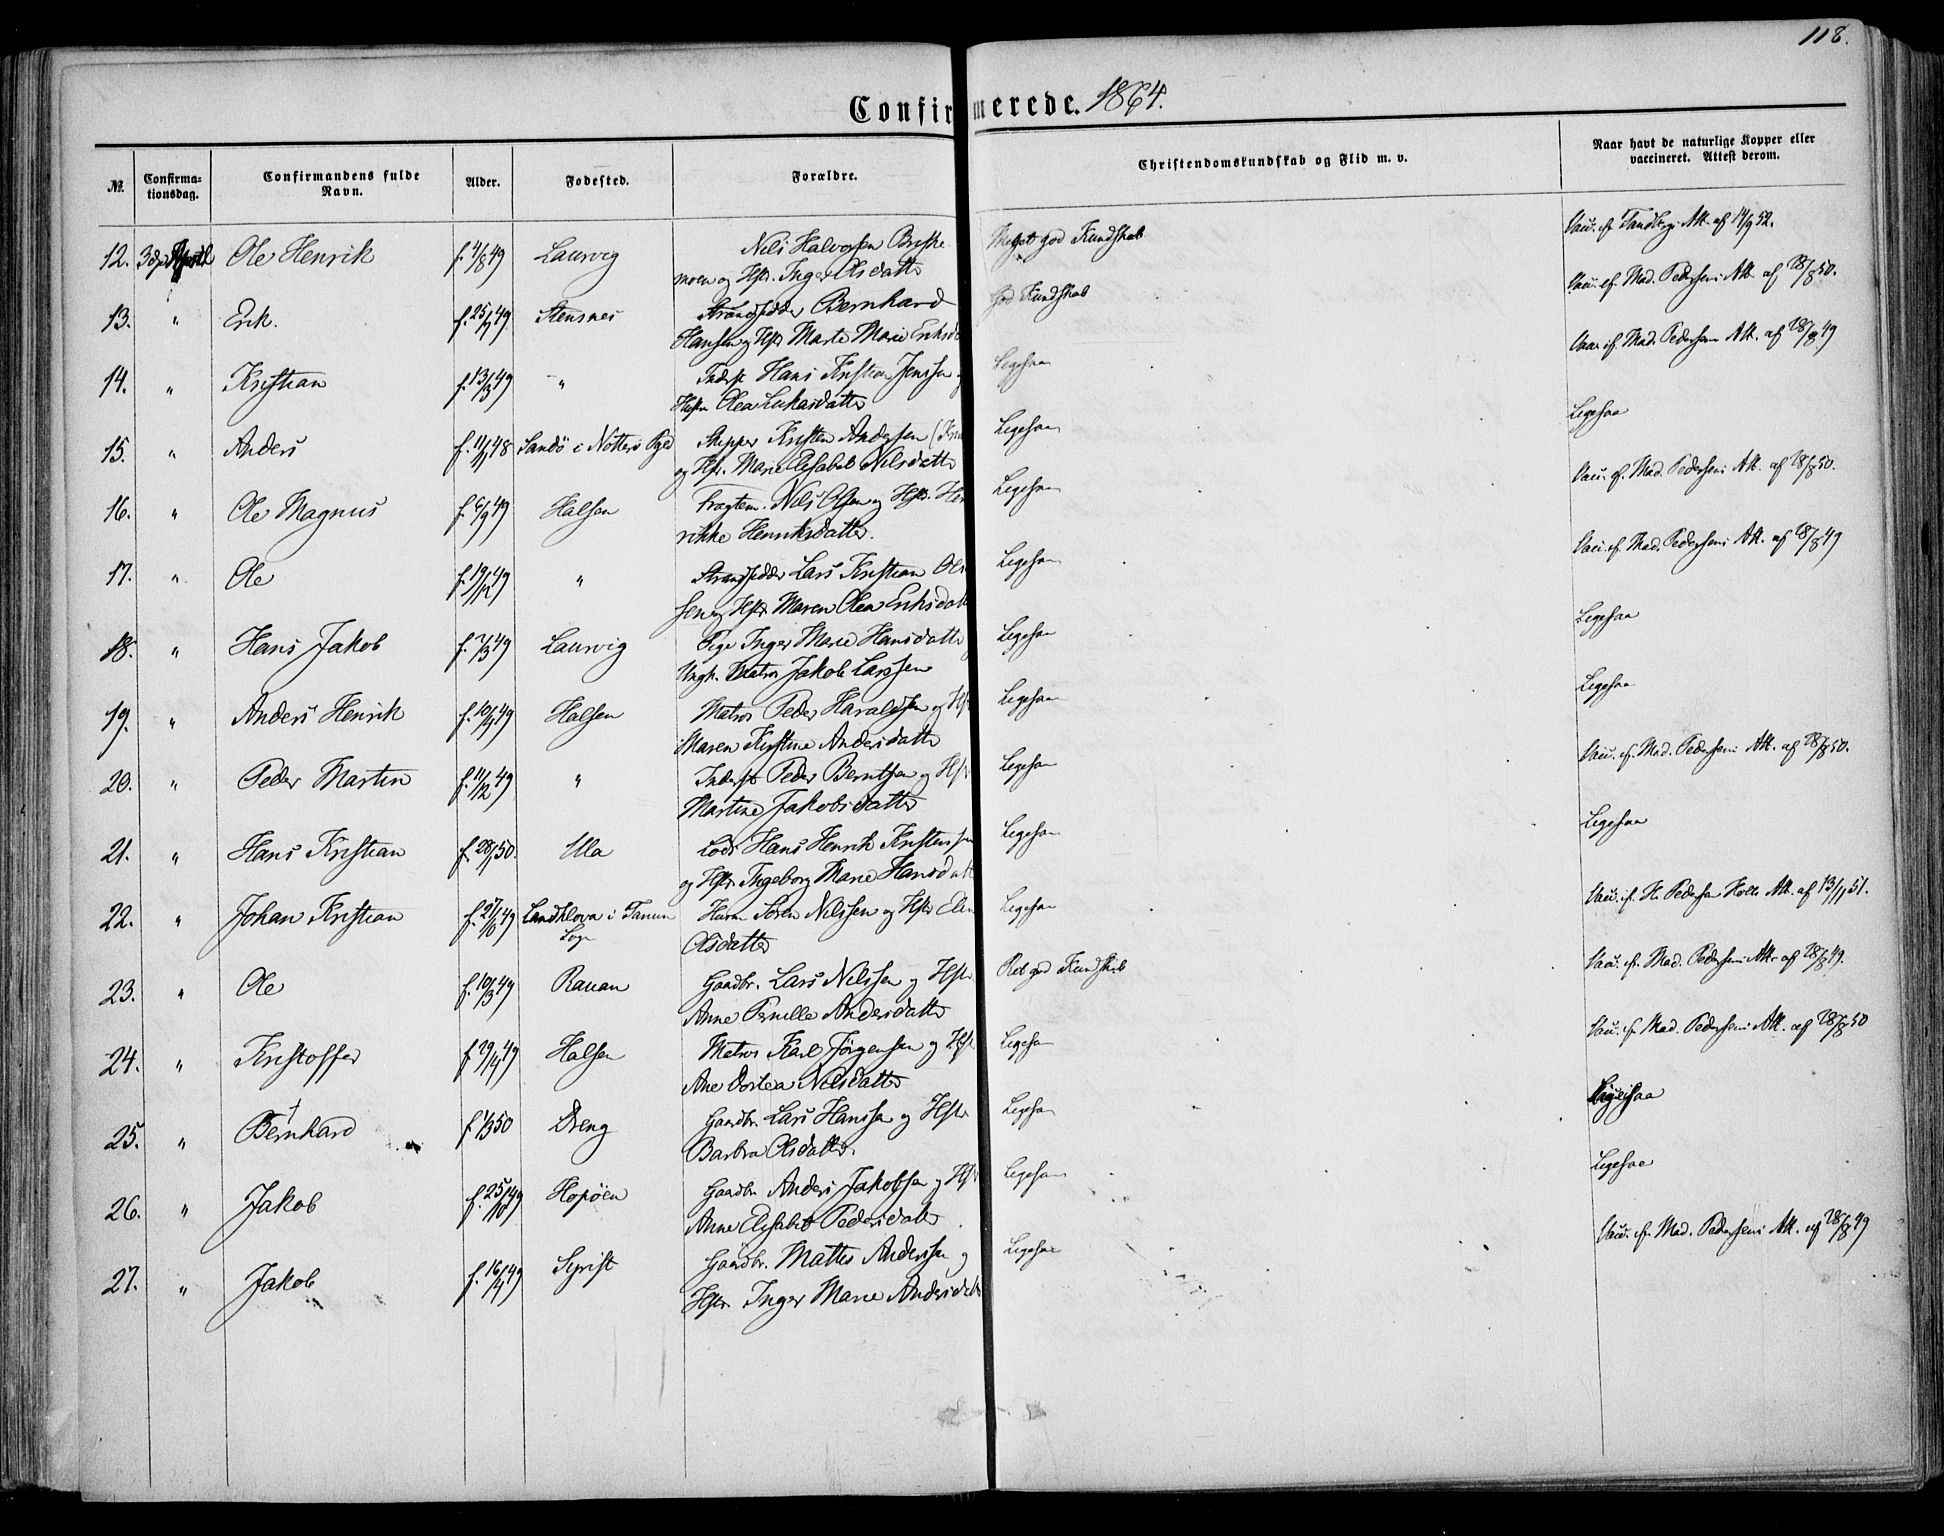 118.
Confirmerede. 1864.
№. Confirmationsdag. Confirmandens fulde Navn. Alder. Fodested. Forældre. Christendomskundskab og Flid m. v. Naar havt de naturlige Kopper eller vaccineret. Attest derom.
12. 3die April Ole Henrik f. 4/8 49 Laurvig Nils Halvorsen Bryske Meget god Kundskab Vacc. ef. Sandbergs Att. af 14/9 52.
moen og Hstr. Inger Olsdatter
13. " Erik. f. 25/9 49 Stensnes Strandsidder Bernhard God Kundskab Vacc. ef. Mad. Pedersens Att. af 28/8 50.
Hansen og Hstr Marte Marie Eriksd
14. " Kristian f. 13/3 49 " Inderst Hans Kristian Jensen Ligesaa Vacc. ef. Mad. Pedersens Att. af 28/8 49
Hstr. Olea Lukasdatter
15. " Anders f. 11/11 48 Sandö i Nötterö Pgld Skipper Kristen Andersen Ligesaa Ligesaa
og Hstr. Marie Elisabet Nilsdatter
16. " Ole Magnus f. 6/9 49 Halsen Fragtem. Nils Olsen og Hstr. Hen Ligesaa Vacc. ef. Mad. Pedersens Att. af 28/8 50.
rikke Henriksdatter.
17. " Ole f. 19/12 49 " Strandsidder Lars Kristian Ol Ligesaa Vacc. ef. Mad. Pedersens Att. af 28/8 49
sen og Hstr Maren Olea Eriksdatt
18. " Hans Jakob f. 7/3 49 Laurvig Pige Inger Marie Hansdatter Ligesaa Ligesaa
Ungk. Matros Jakob Larssen
19. " Anders Henrik f. 10/4 49 Halsen Matros Peder Haraldsen og Hst Ligesaa Ligesaa
Maren Kirstine Andersdatter
20. " Peder Martin f. 11/12 49 " Inderst Peder Berntsen og Hstr Ligesaa Vacc. ef. Mad. Pedersens Att. af 28/8 50.
Martine Jakobsdatter
21. " Hans Kristian f. 28/1 50. Ula Lods Hans Henrik Kristenssen Ligesaa Ligesaa
og Hstr. Ingeborg Marie Hansdatt
22. " Johan Kristian f. 27/6 49 Sandkleva i Tanum Husm Sören Nilssen og Hstr Elen Ligesaa Vacc. ef. H. Pedersen Holts Att. af 13/11 51.
Sogn Olsdatter
23. " Ole f. 10/3 49 Rauan Gaardbr. Lars Nilssen og Hstr Ret god Kundskab Vacc. ef. Mad. Pedersens Att. af 28/8 49.
Anne Pernille Andersdatter
24. " Kristoffer f. 29/4 49 Halsen Matros Karl Jörgensen og Hst Ligesaa Vacc. ef. Mad. Pedersens Att. af 28/8 50
Ane Dortea Nilsdatter
25. " Bernhard f. 1/3 50 Dreng Gaardbr. Lars Hanssen og Hstr Ligesaa Ligesaa
Barbra Olsdatter.
26. " Jakob f. 25/10 49 Hopöen Gaardbr Anders Jakobsen og Hst Ligesaa Ligesaa
Anne Elisabet Pedersdatter
27. " Jakob f. 16/4 49 Gaardbr. Mattis Anderssen og Ligesaa Vacc. ef. Mad. Pedersens Att. af 28/8 49
Hstr. Inger Marie Andersdatt